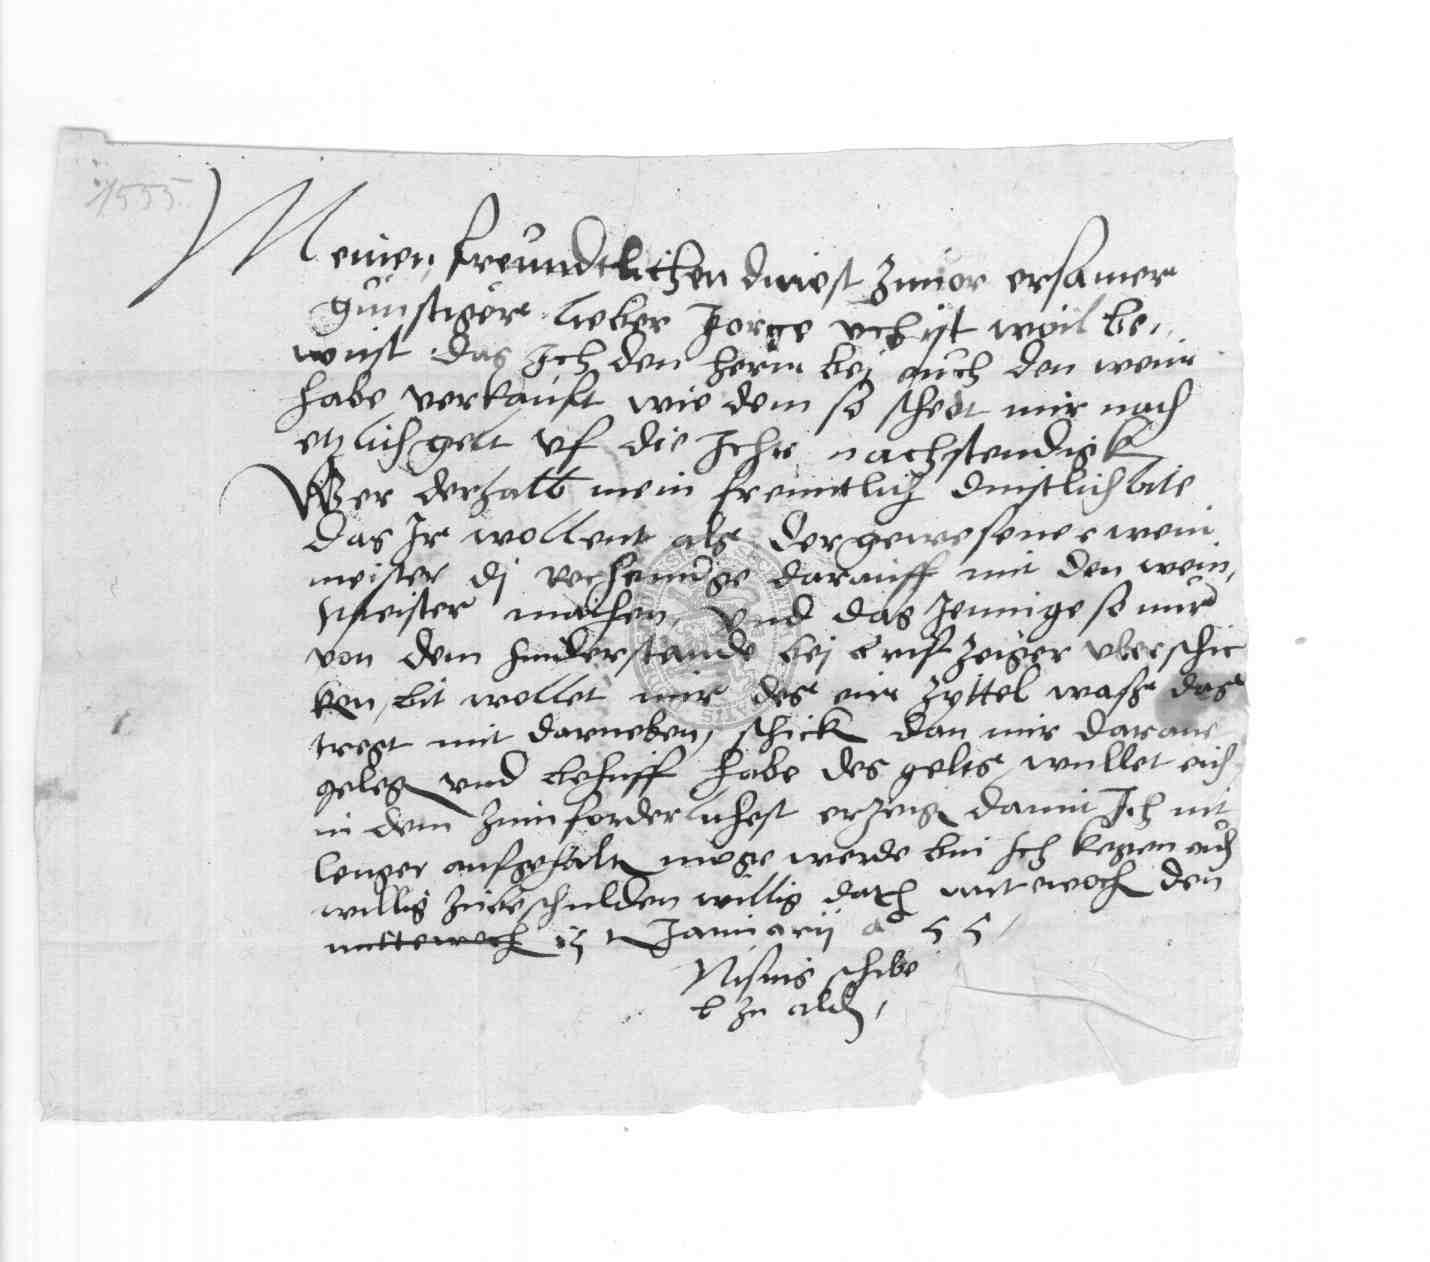 1555.
Meinen freundtlichen dinest zuuor ersamer
gunstiger lieber Jorge uch ist woil be„
wust das Ich den hern bej auch den wein
habe verkaufft wie dem so schedt mir noch
etzlich gelt vf die Jhr nachstendigk
Wer derhalb mein freuntlich dinstlich bite
das Ir wollent als der gewesener wein
meister dj rechenunge darauff mit den wein„
Meister machen, vnd das Jennige so mir
von dem hinderstande bej briff zeiger vberschic
ken, bit wollet mir des ein zyttel wass das
tregt mit darneben, schick dan mir daran
geleg vnd behuff habe des gelts wullet eich
in dem zum forderlichest erzeig damit Ich nit
lenger aufgehalt moge werde bin Ich kegen auch
willig zubeschulden willig dat mitewoch den
mittewoch Januarij ao 55
schibe
b zu ald